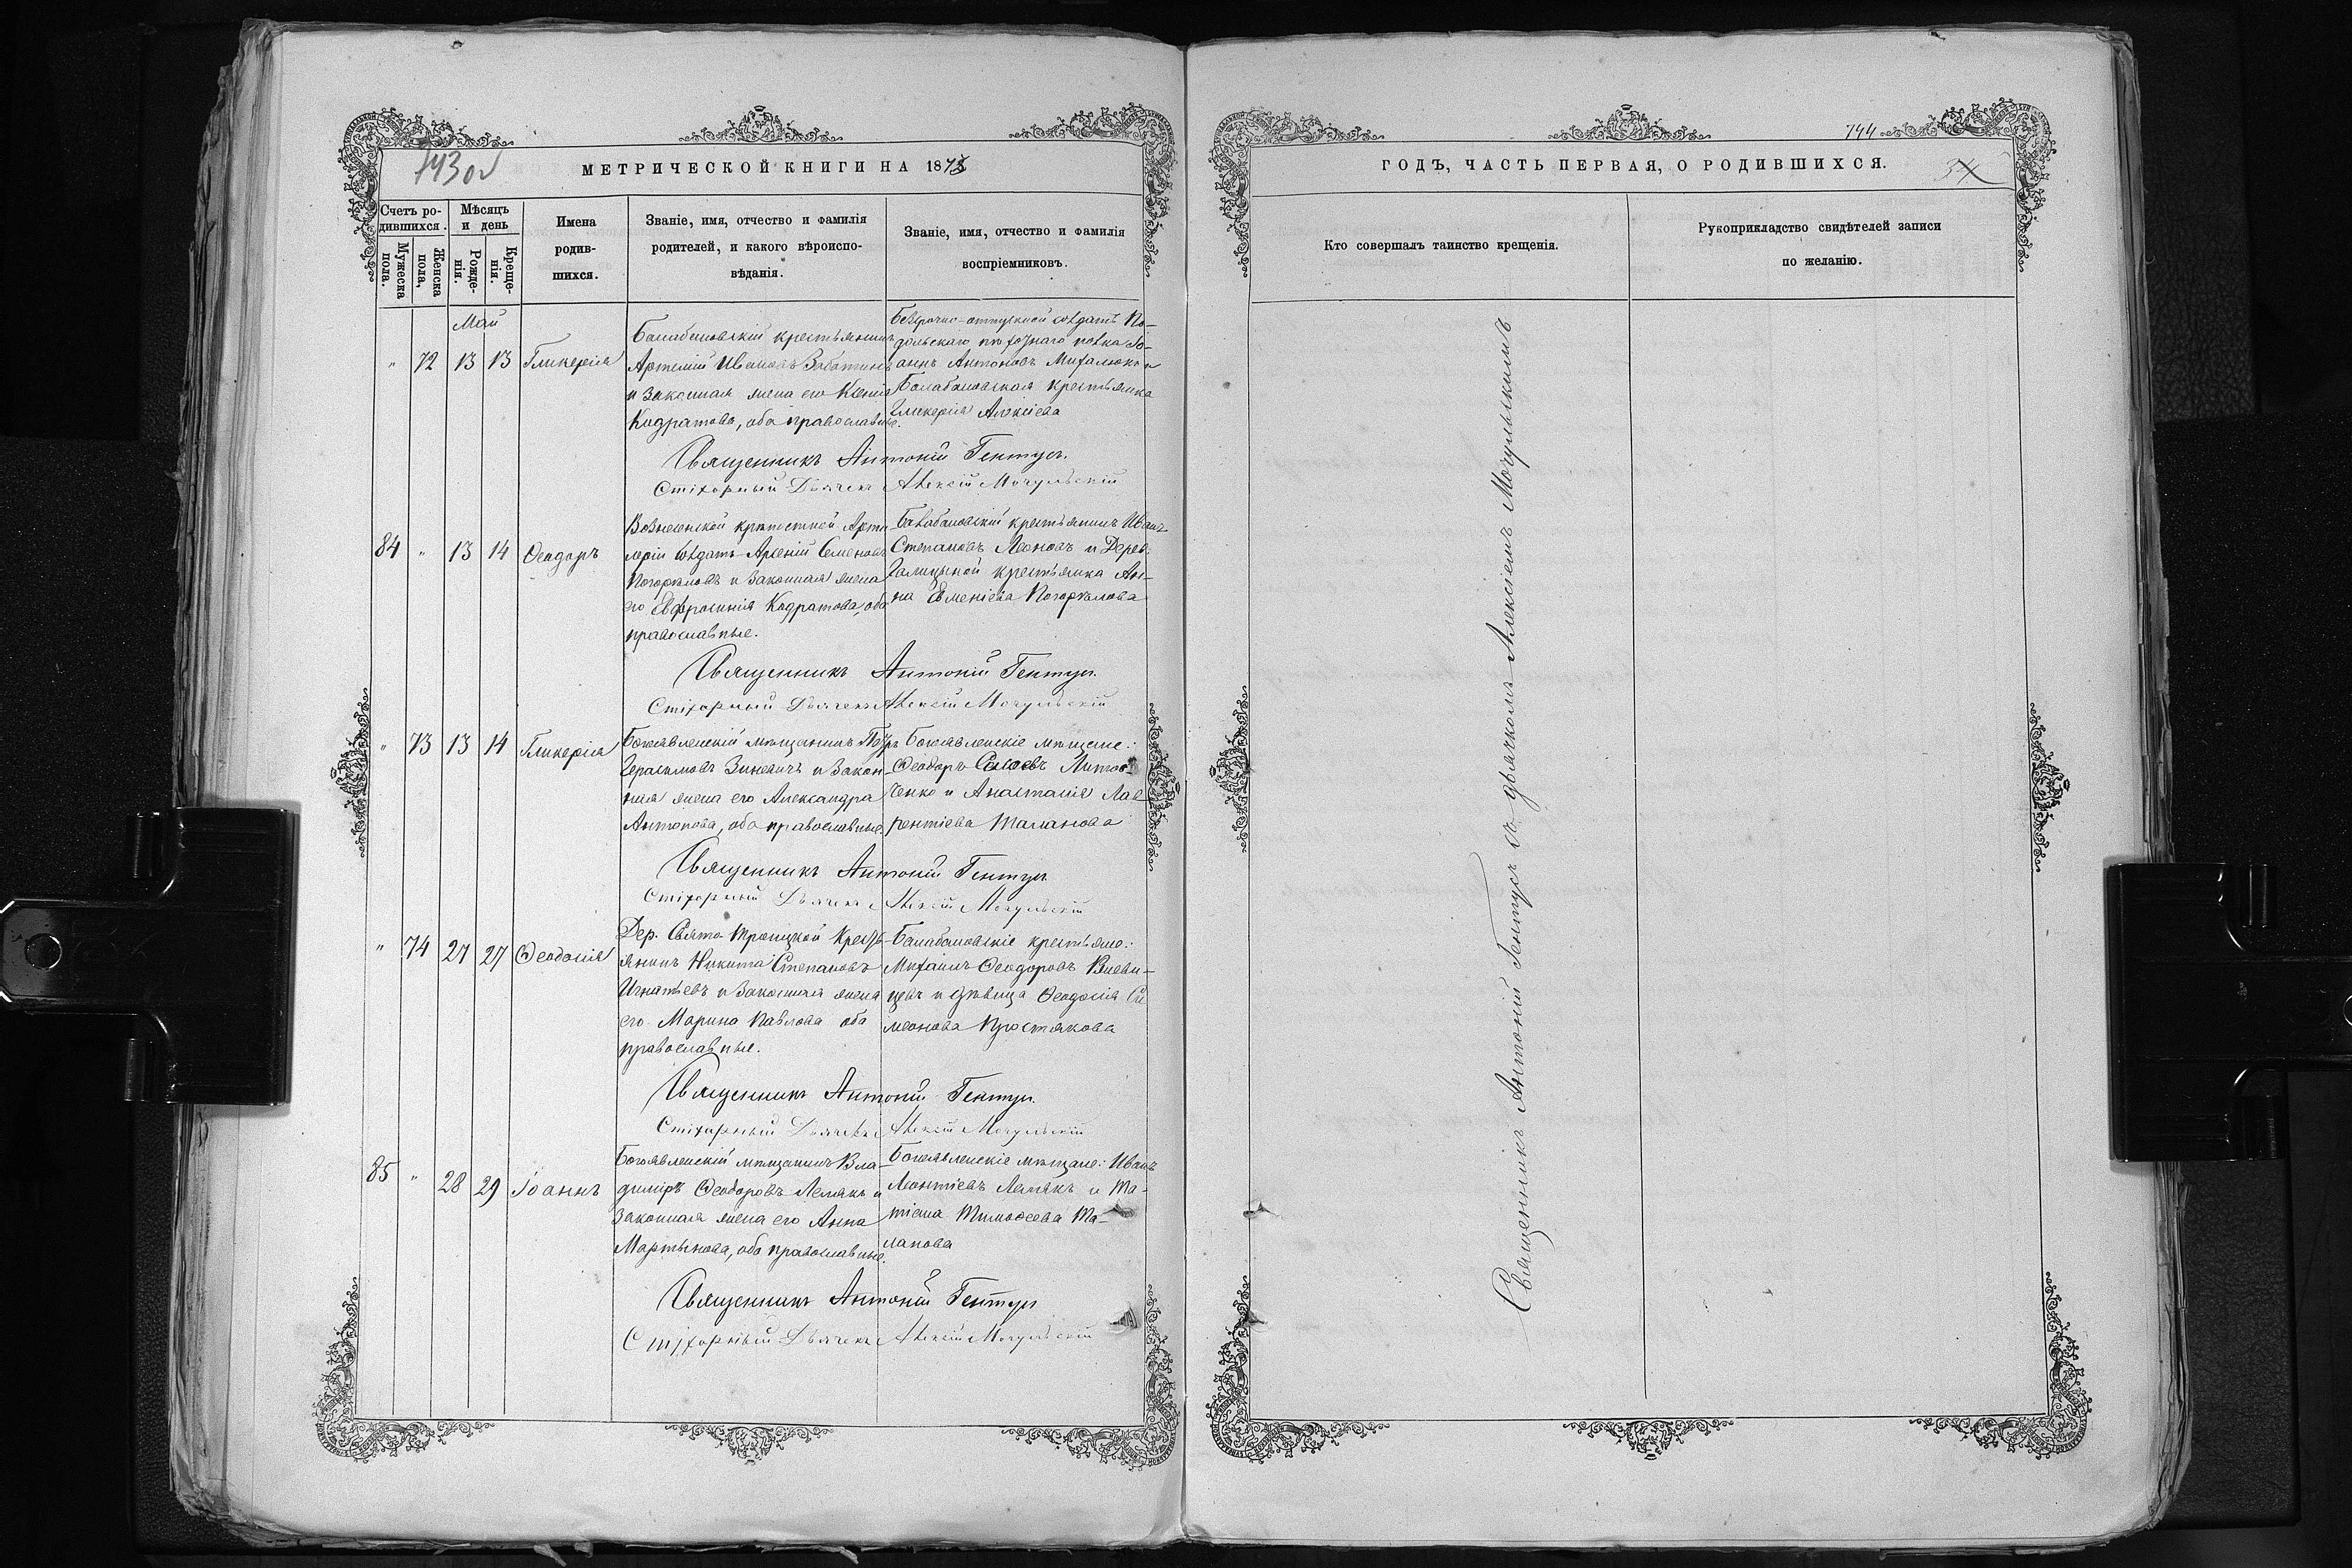 743 об
МЕТРИЧЕСКОЙ КНИГИ НА 187
Счетъ ро-
дившихся.
Мужеска
пола.
Женска
пола,
Мѣсяцъ
и день
Рожде-
нія.
Креще-
нія.
Имена
родив-
шихся.
Званіе, имя, отчество и фамилія
родителей, и какого вѣроиспо-
вѣданія.
Званіе, имя, отчество и фамилія
воспріемниковъ.
Май
" 72 13 13 Гликерія
Балабановскій крестьянинъ
Артемій Ивановъ
и законная жена его Ксенія
Кодратова, оба православные.
Безсрочно-отпускной солдатъ По-
дольскаго пѣхознаго полка Іо-
аннъ Антоновъ Михалюкъ и
Балабановская крестьянка
Гликерія Алексіева
Священникъ Антоній Гентусъ.
Стихарный Дьячекъ Алексій Мочульскій
84 " 13 14 Ѳеодоръ
Вознесенской крѣпостной Арти-
леріи солдатъ Арсеній Семеновъ
Погорѣловъ и законная жена
его Евфросинія Кодратова, оба
православные.
Балабановскій крестьянинъ Иванъ
Степановъ Леоновъ и Дерев.
Галицыной крестьянка Ан-
на Евменіева Погорѣлова
Священникъ Антоній Гентусъ.
Стихарный Дьячекъ Алексій Мочульскій
" 73 13 14 Гликерія
Богоявленскій мѣщанинъ Петръ
Герасимовъ Зиневичъ и закон-
ная жена его Александра
Антонова, оба православные.
Богоявленскіе мѣщане:
Ѳеодоръ Литов-
ченко и Анастасія Лав-
рентіева Таланова
Священникъ Антоній Гентусъ
Стихарный Дьячекъ Алексій Мочульскій
" 74 27 27 Ѳеодосія
Дер. Свято-Троицкой Кресть-
янинъ Никита Степановъ
Игнатьевъ и законная жена
его Марина Павлова оба
православные.
Балабановскіе крестьяне:
Михаилъ Ѳеодоровъ
и дѣвица Ѳеодосія Си-
меонова Простякова
Священникъ Антоній Гентусъ.
Стихарный Дьячекъ Алексій Мочульскій
85 " 28 29 Іоаннъ
Богоявленскій мѣщанинъ Вла-
димиръ Ѳеодоровъ Лемякъ и
законная жена его Анна
Мартынова, оба православные.
Богоявленскіе мѣщане: Иванъ
Леонтіевъ Лемякъ и Та-
тіана Тимоѳеева Та-
ланова
Священникъ Антоній Гентусъ
Стихарный Дьячекъ Алексій Мочульскій
744
ГОДЪ, ЧАСТЬ ПЕРВАЯ, О РОДИВШИХСЯ.
Кто совершалъ таинство крещенія.
Рукоприкладство свидѣтелей записи
по желанію.
Священникъ Антоній Гентусъ съ дьячкомъ Алексіемъ Мочульскимъ